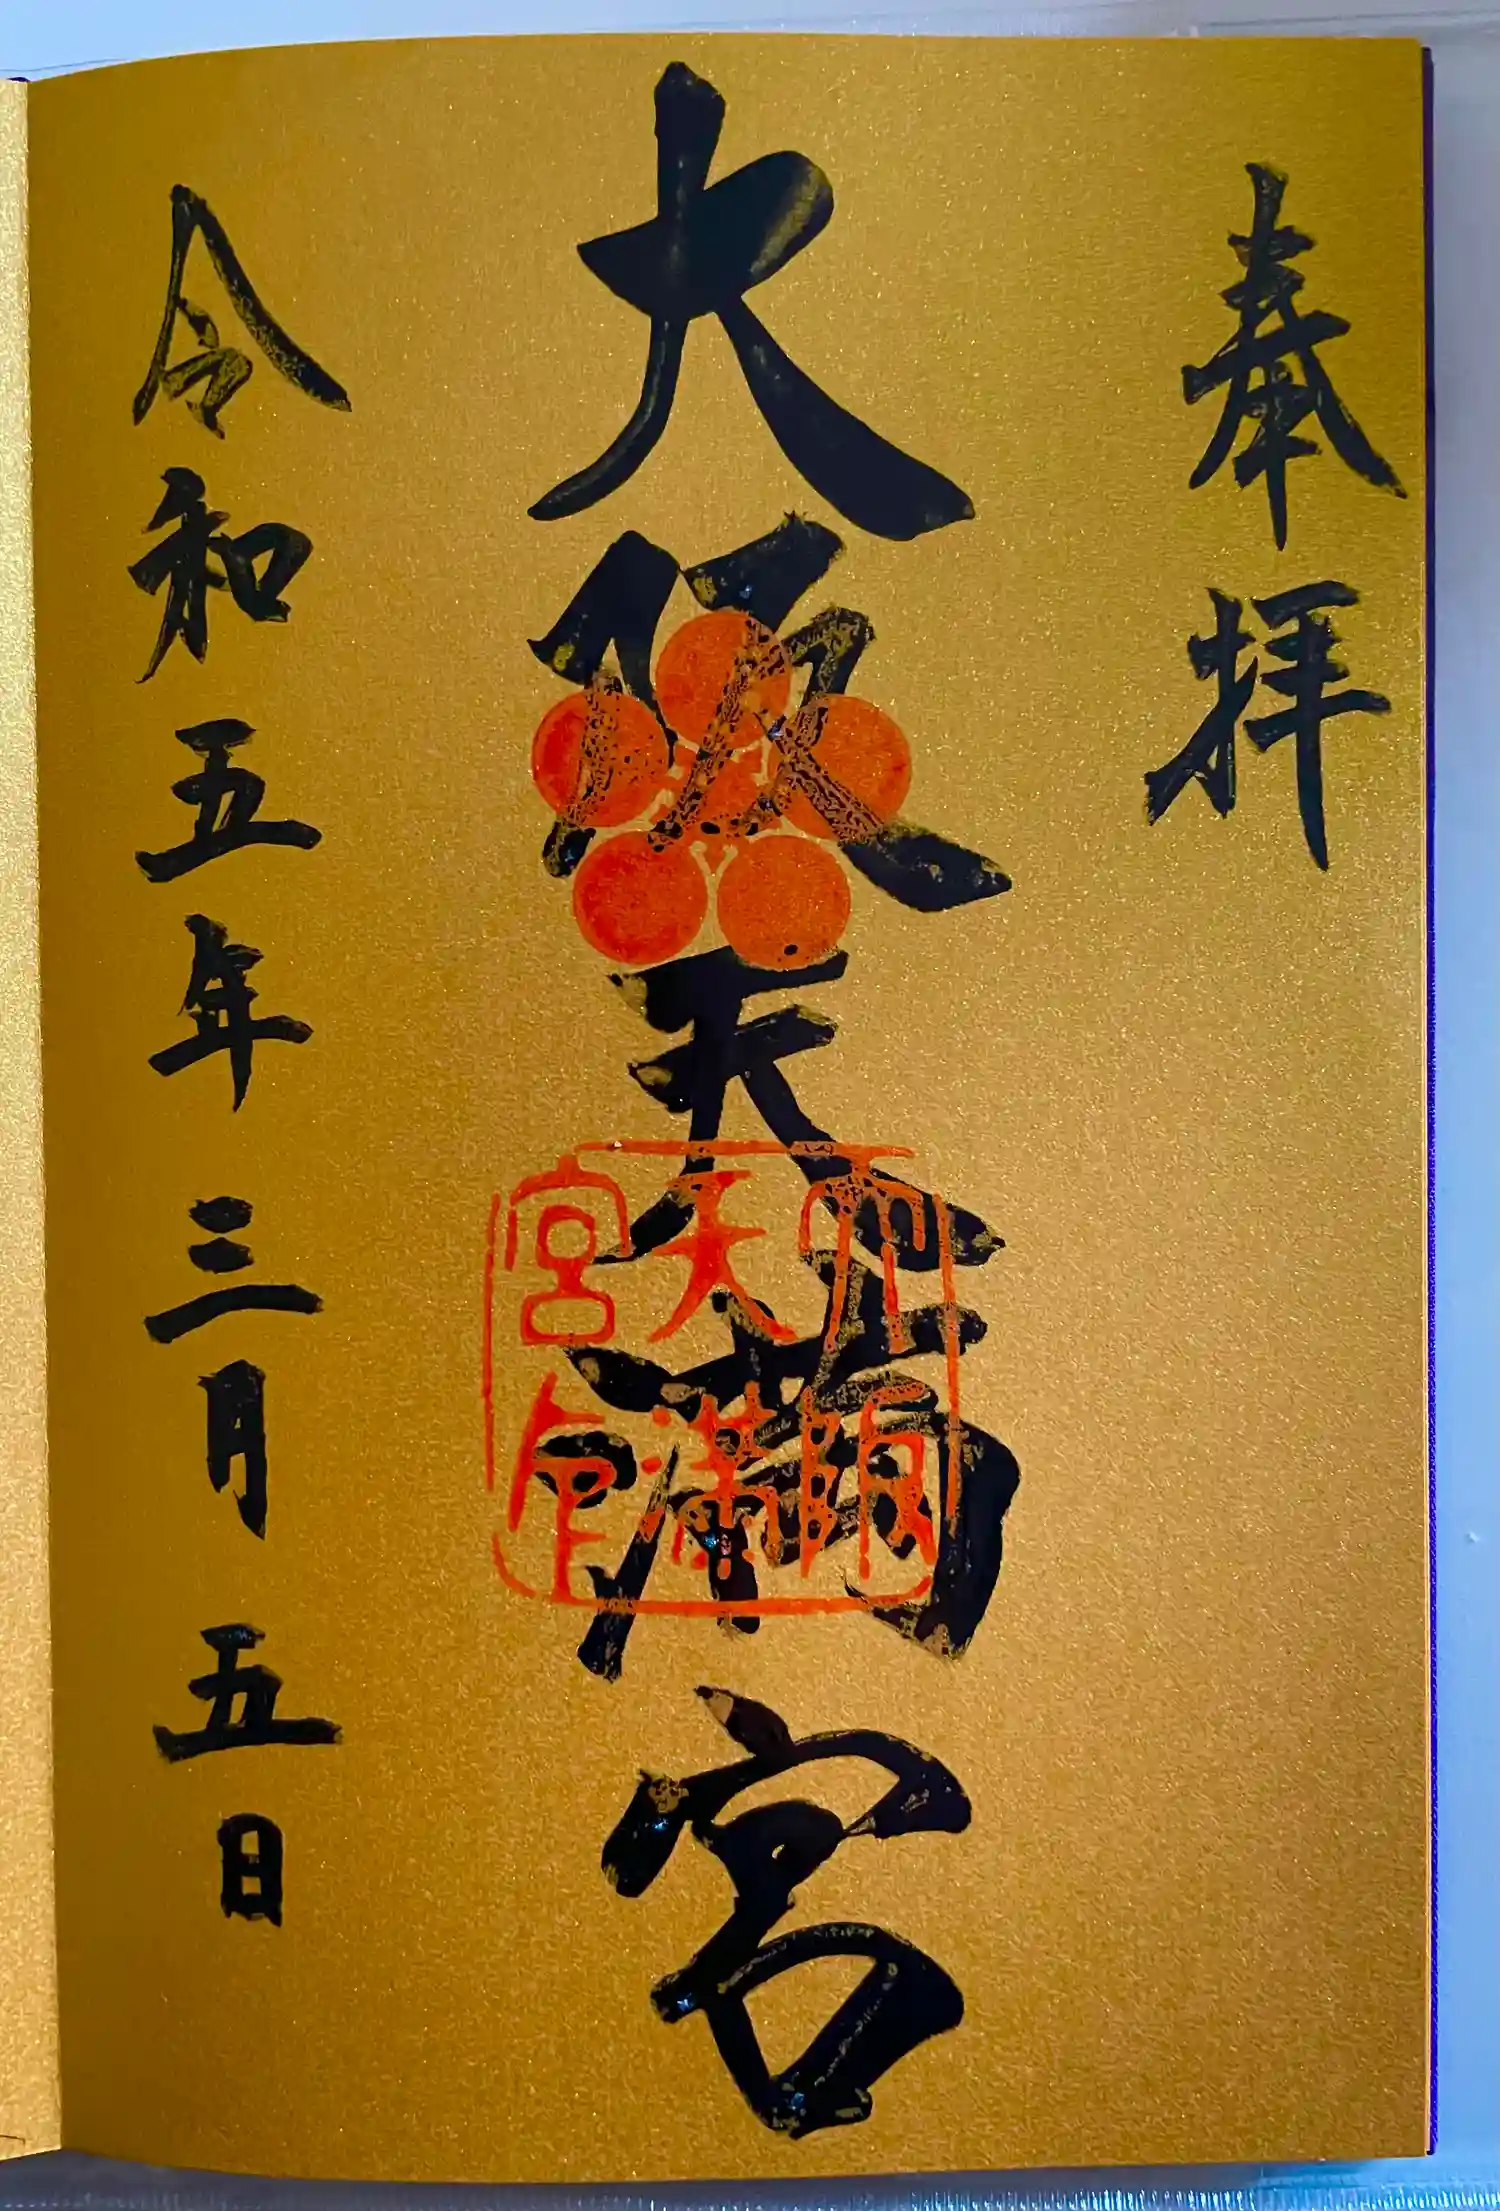 奉拝
大阪天満宮
大阪天満宮印
令和五年三月五日